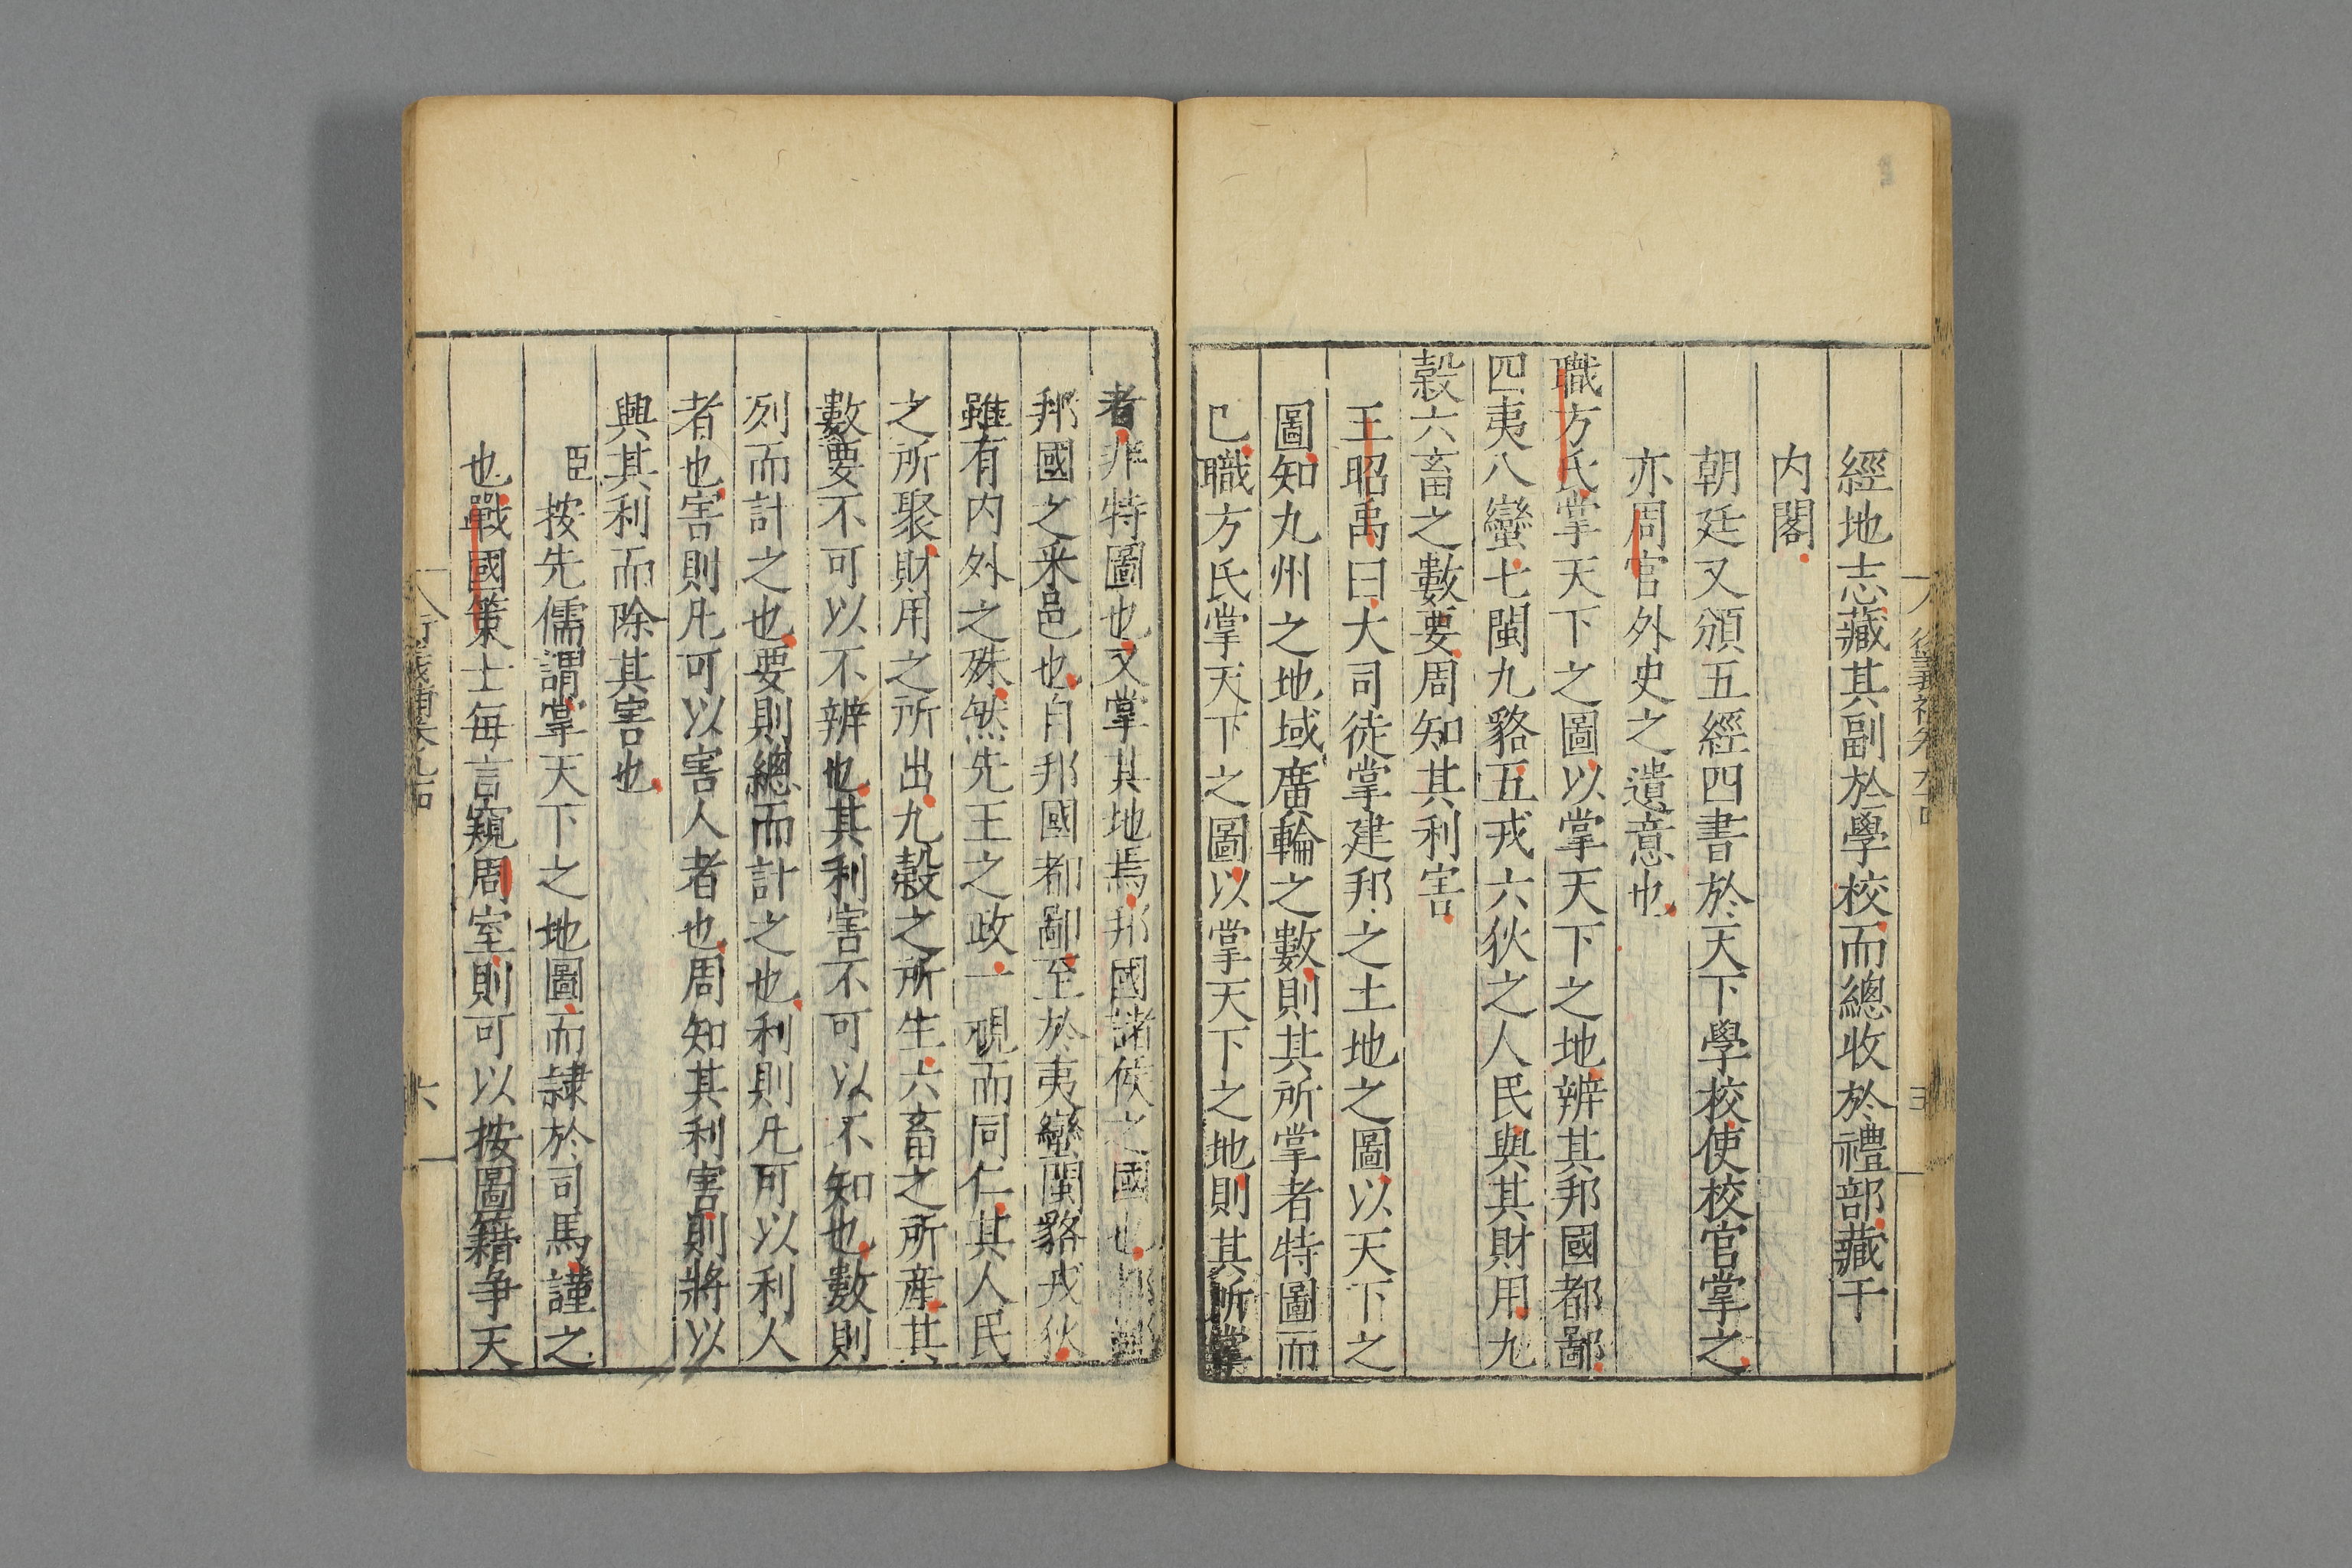 經地志藏其副於學校而總收於禮部藏干
内閣
朝廷又頒五經四書於天下學校使校官掌之
亦周官外史之遺意也
職方氏掌天下之圖以掌天下之地辨其邦國都鄙
四夷八蠻七閩九貉五戎六狄之人民與其財用九
穀六畜之數要周知其利害
王昭禹曰大司徒掌建邦之土地之圖以天下之
圖知九州之地域廣輪之數則其所掌者特圖而
已職方氏掌天下之圖以掌天下之地則其所掌
者非特圖也又掌其地焉邦國諸侯之國也都鄙
邦國之采邑也自邦國都鄙至於夷蠻閩貉戎狄
雖有内外之殊然先王之政一視而同仁其人民
之所聚財用之所出九穀之所生六畜之所産其
數要不可以不辨也其利害不可以不知也數則
列而計之也要則總而計之也利則凡可以利人
者也害則凡可以害人者也周知其利害則將以
興其利而除其害也
臣按先儒謂掌天下之地圖而隷於司馬謹之
也戰國策士每言窺周室則可以按圖籍争天
衍義補卷九四
六